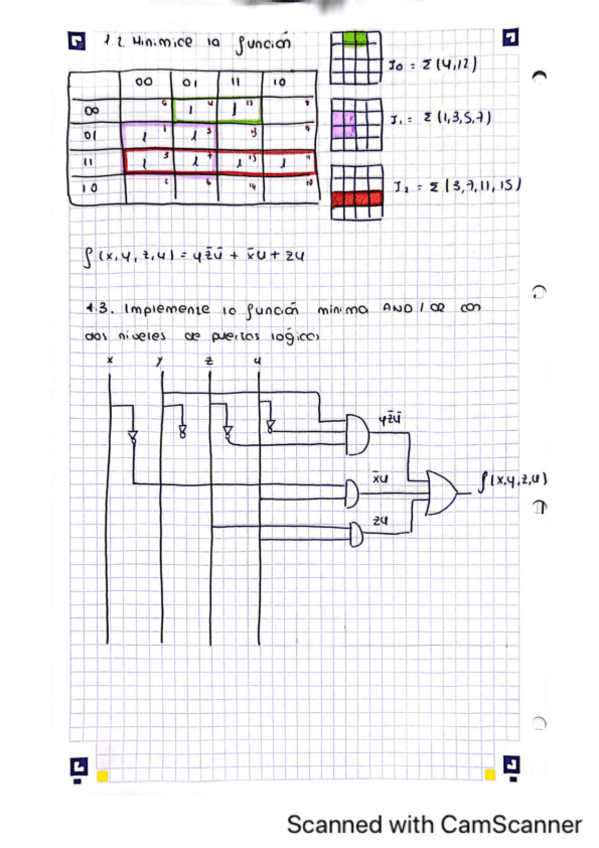 1.2. Minimice la función
00 01 11 10
00 0 1 4 1 12 8
01 1 1 1 5 13 9
11 1 3 1 7 1 15 1 11
10 2 6 14 10
I₀ = Σ(4,12)
I₁ = Σ(1,3,5,7)
I₂ = Σ(3,7,11,15)
f(x,y,z,u) = yz̄ū + x̄u + zu
1.3. Implemente la función minima AND/OR con
dos niveles de puertas lógicas
x y z u
yz̄ū
x̄u
f(x,y,z,u)
zu
Scanned with CamScanner